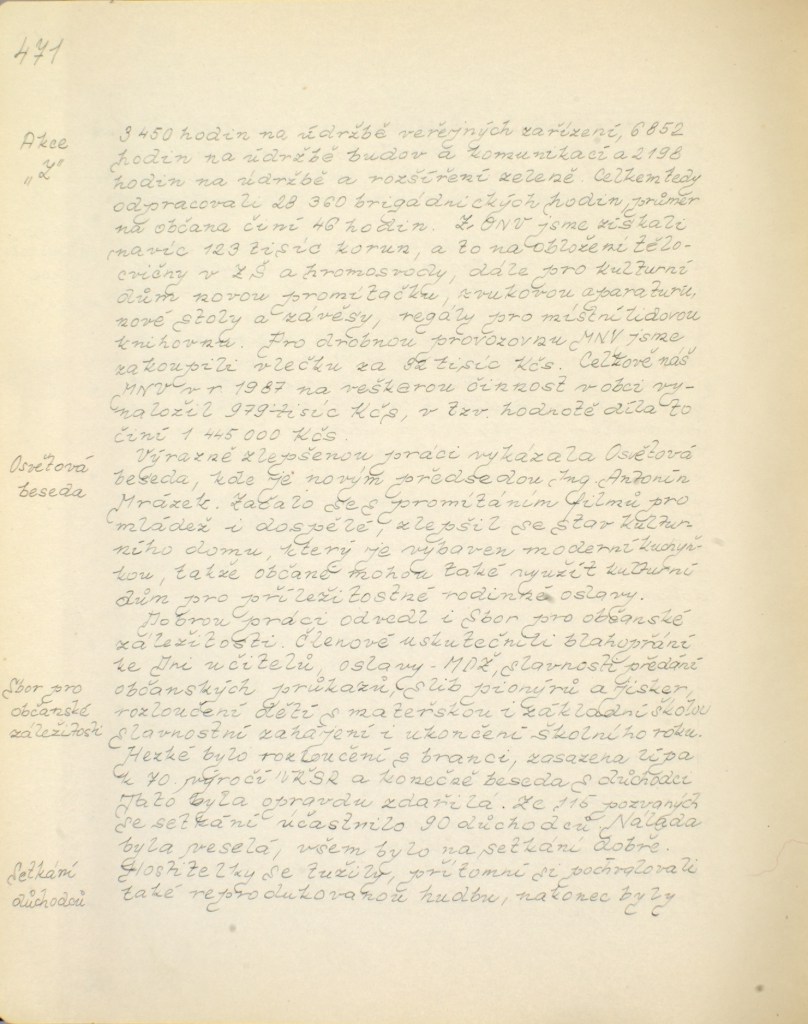 471
Akce
„Z"
3 450 hodin na údržbě veřejných zařízení, 6 852
hodin na údržbě budov a komunikací a 2 198
hodin na údržbě a rozšíření zeleně. Celkem tedy
odpracovali 28 360 brigádnických hodin, průměr
na občana činí 46 hodin. Z ONV jsme získali
navíc 123 tisíc korun, a to na obložení tělo-
cvičny v ZŠ a hromosvody, dále pro kulturní
dům novou promítačku, zvukovou aparaturu,
nové stoly a závěsy, regály pro místní lidovou
knihovnu. Pro drobnou provozovnu MNV jsme
zakoupili vlečku za 82 tisíc Kčs. Celkově náš
MNV v r 1987 na veškerou činnost v obci vy-
naložil 979 tisíc Kčs, v tzv. hodnotě díla to
činí 1 445 000 Kčs.
Osvětová
beseda
Výrazně zlepšenou práci vykázala Osvětová
beseda, kde je novým předsedou Ing. Antonín
Mrázek. Začalo se s promítáním filmů pro
mládež i dospělé, zlepšil se stav kultur
ního domu, který je vybaven moderní kuchyň-
kou, takže občané mohou také využít kulturní
dům pro příležitostné rodinné oslavy.
Dobrou práci odvedl i Sbor pro občanské
záležitosti. Členové uskutečnili blahopřání
ke Dni učitelů, oslavy MDŽ, slavnosti předání
Sbor pro
občanské
záležitosti
občanských průkazů, slib pionýrů a jisker,
rozloučení dětí s mateřskou i základní školou
slavnostní zahájení i ukončení školního roku.
Hezké bylo rozloučení s branci, zasazena lípa
k 70. výročí VŘSR a konečně beseda s důchodci
Tato byla opravdu zdařilá. Ze 116 pozvaných
se setkání účastnilo 90 důchodců. Nálada
byla veselá, všem bylo na setkání dobře.
Setkání
důchodců
Hostitelky se tužily, přítomní si pochvalovali
také reprodukovanou hudbu, nakonec byly